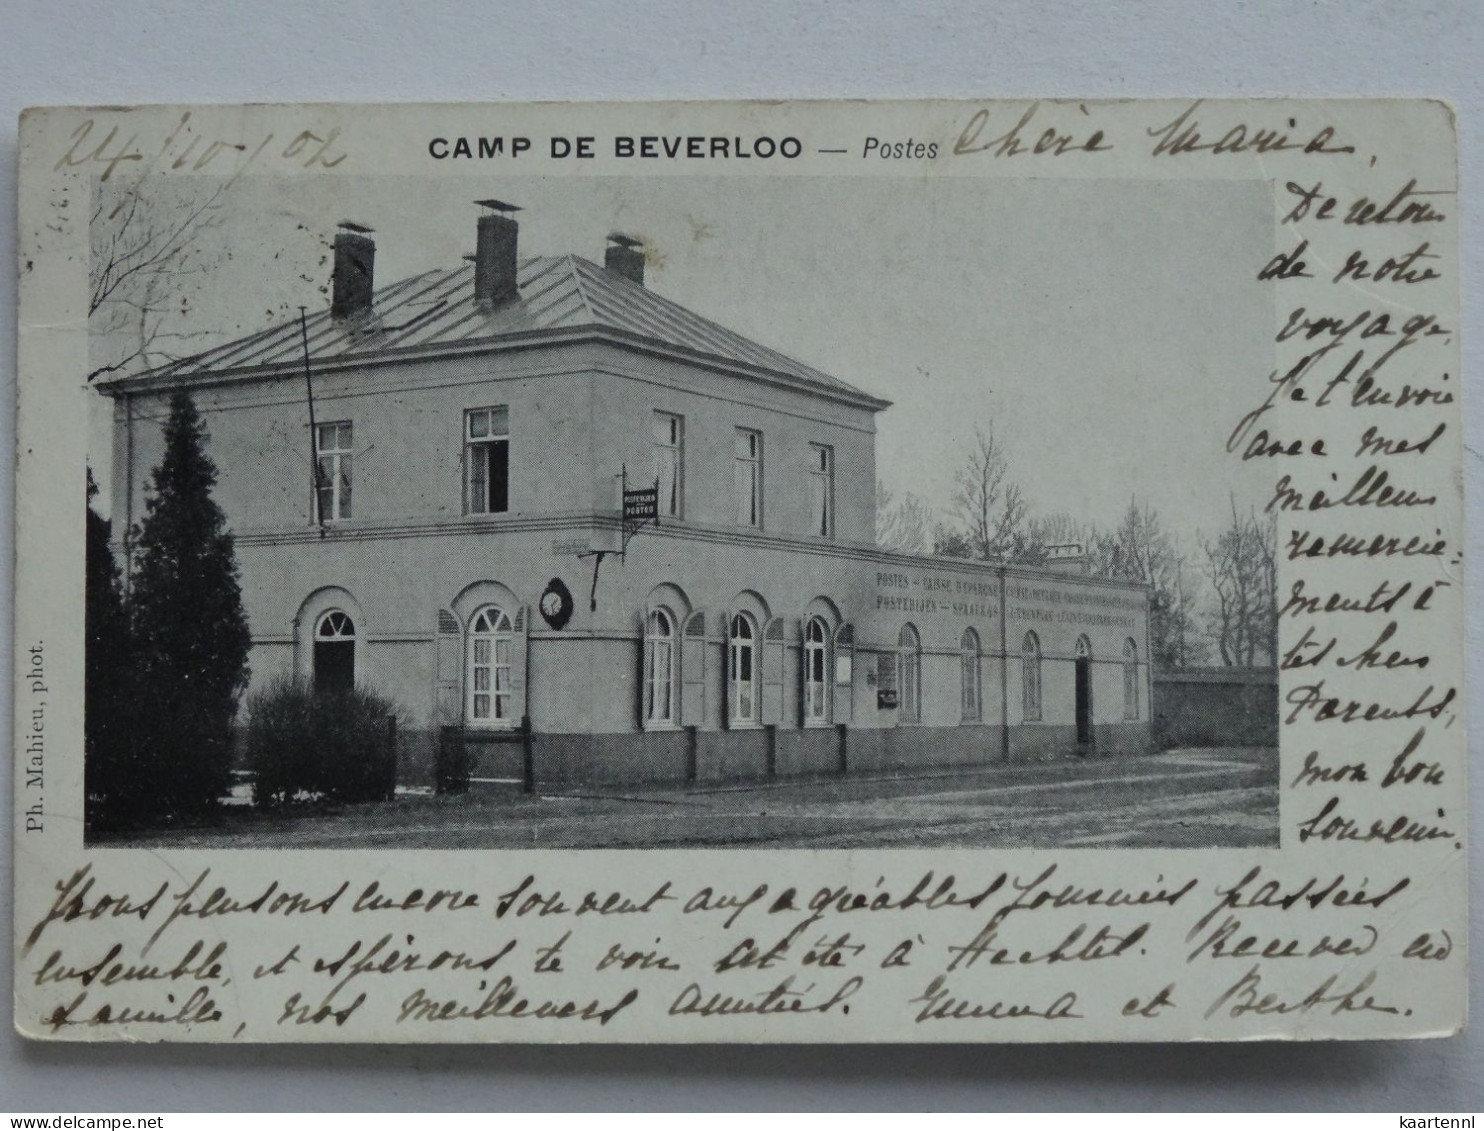 24/10/02
CAMP DE BEVERLOO — Postes
Chère Maria,
De retour
de notre
voyage,
Je t'envoie
avec mes
meilleurs
remercie-
ments à
tes chers
Parents,
mon bon
souvenir.
Nous pensons encore souvent aux agréables journées passées
ensemble, et espérons te voir cet été à Hechtel. Recevez en
famille, nos meilleures amitiés. Emma et Berthe.
Ph. Mahieu, phot.
POSTERIJEN
POSTES
POSTES — CAISSE D'EPARGNE
POSTERIJEN — SPAARKAS
kaartennl